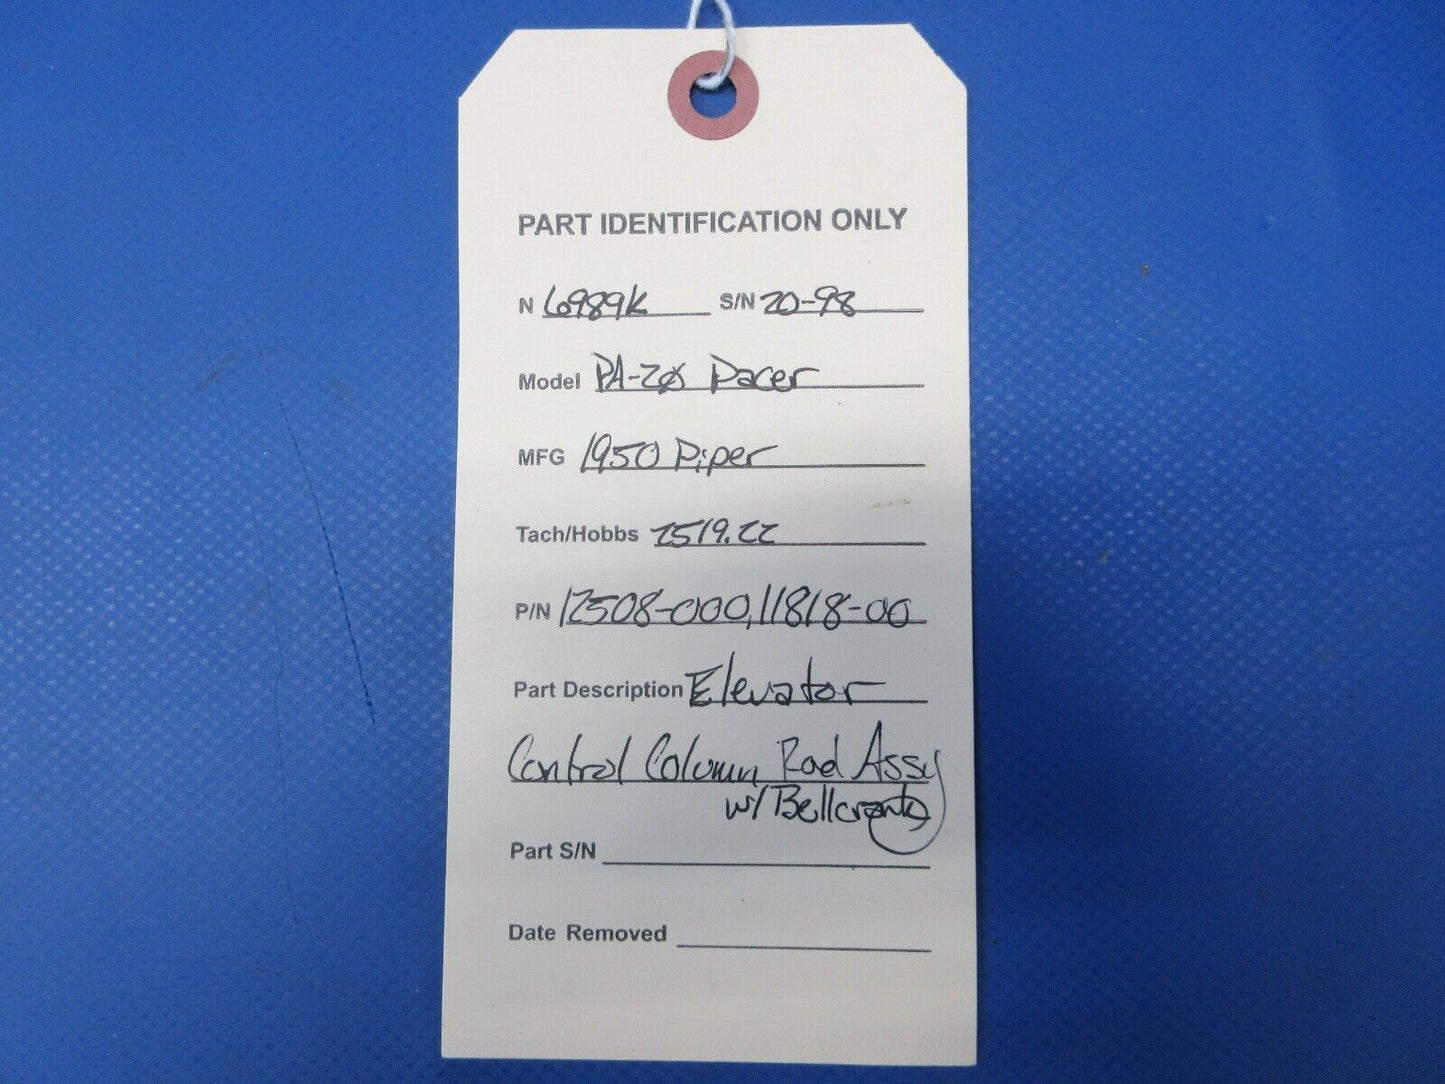 PART IDENTIFICATION ONLY
N 6989K S/N 20-98
Model PA-20 Pacer
MFG 1950 Piper
Tach/Hobbs 2519.22
P/N 12508-000, 11818-00
Part Description Elevator
Control Column Rod Assy
w/ Bellcrank
Part S/N
Date Removed